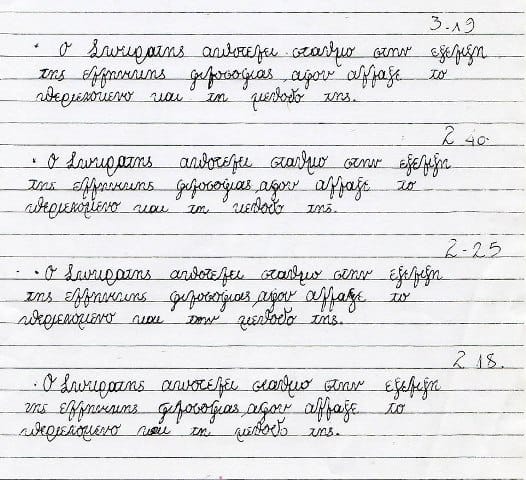 3-19
· Ο Σωκρατης αποτελει σταθμο στην εξελιξη
της ελληνικης φιλοσοφιας, αφου αλλαξε το
περιεχομενο και τη μεθοδο της.
2 40.
· Ο Σωκρατης αποτελει σταθμο στην εξελιξη
της ελληνικης φιλοσοφιας, αφου αλλαξε το
περιεχομενο και τη μεθοδο της.
2-25
· Ο Σωκρατης αποτελει σταθμο στην εξελιξη
της ελληνικης φιλοσοφιας, αφου αλλαξε το
περιεχομενο και την μεθοδο της.
2 18.
· Ο Σωκρατης αποτελει σταθμο στην εξελιξη
της ελληνικης φιλοσοφιας, αφου αλλαξε το
περιεχομενο και τη μεθοδο της.